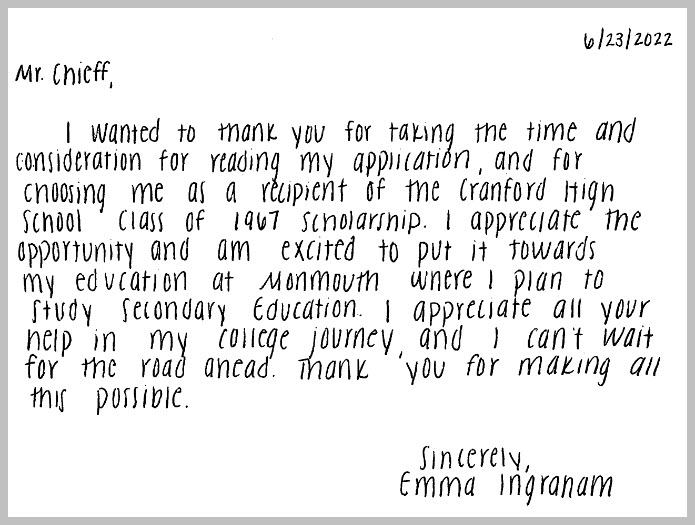 6/23/2022
Mr. Chieff,
I wanted to thank you for taking the time and
consideration for reading my application, and for
choosing me as a recipient of the Cranford High
School Class of 1967 scholarship. I appreciate the
opportunity and am excited to put it towards
my education at Monmouth where I plan to
study Secondary Education. I appreciate all your
help in my college journey, and I can't wait
for the road ahead. Thank you for making all
this possible.
Sincerely,
Emma Ingraham